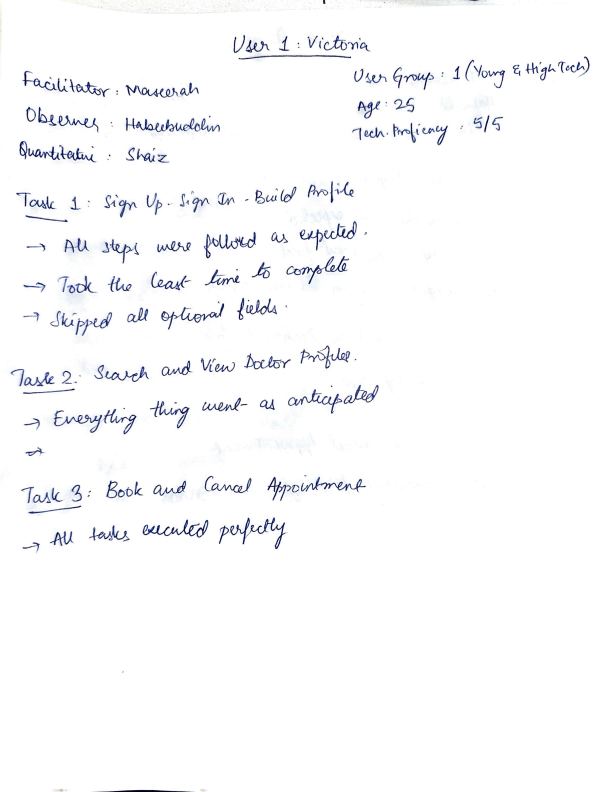 User 1 : Victoria
Facilitator : Maseerah
Observer : Habeebuddin
Quantitative : Shaiz
User Group : 1 (Young & High Tech)
Age : 25
Tech. Proficency : 5/5
Task 1 : Sign Up - Sign In - Build Profile
→ All steps were follwed as expected.
→ Took the least time to complete
→ Skipped all optional fields.
Task 2 : Search and View Doctor Profiles.
→ Everything thing went as anticipated
→
Task 3 : Book and Cancel Appointment
→ All tasks executed perfectly